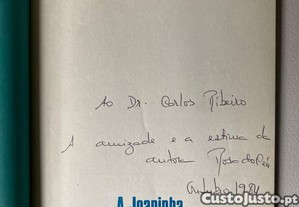 Ao Dr. Carlos Ribeiro
A amizade e a estima da
autora Rosa do Céu
Outubro 1984
A Joaninha
CustoJusto.pt